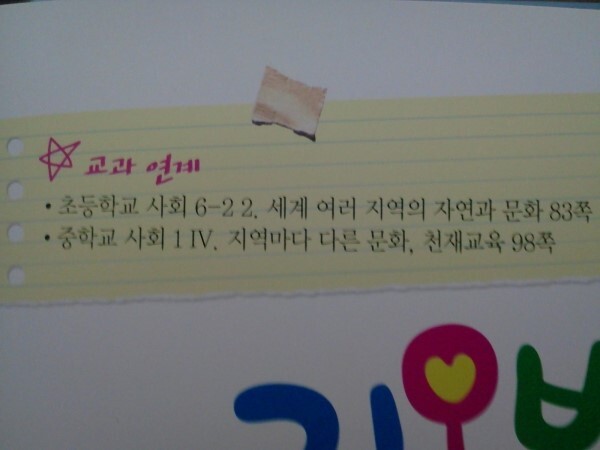 교과 연계
• 초등학교 사회 6-2 2. 세계 여러 지역의 자연과 문화 83쪽
• 중학교 사회 1 IV. 지역마다 다른 문화, 천재교육 98쪽